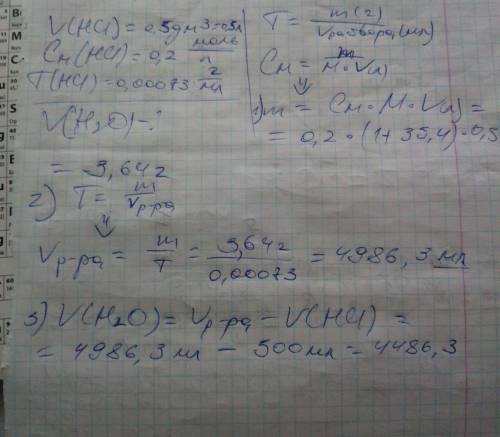 V(HCl) = 0,5дм3=0,5л
Cм(HCl) = 0,2 моль/л
T(HCl) = 0,00073 г/мл
V(H2O) - ?
T = m(г) / Vраствора(мл)
Cм = m / M·V(л)
1) m = Cм·M·V(л) =
= 0,2·(1+35,4)·0,5
= 3,64г
2) T = m / Vр-ра
Vр-ра = m / T = 3,64г / 0,00073 = 4986,3 мл
3) V(H2O) = Vр-ра – V(HCl) =
= 4986,3 мл – 500мл = 4486,3